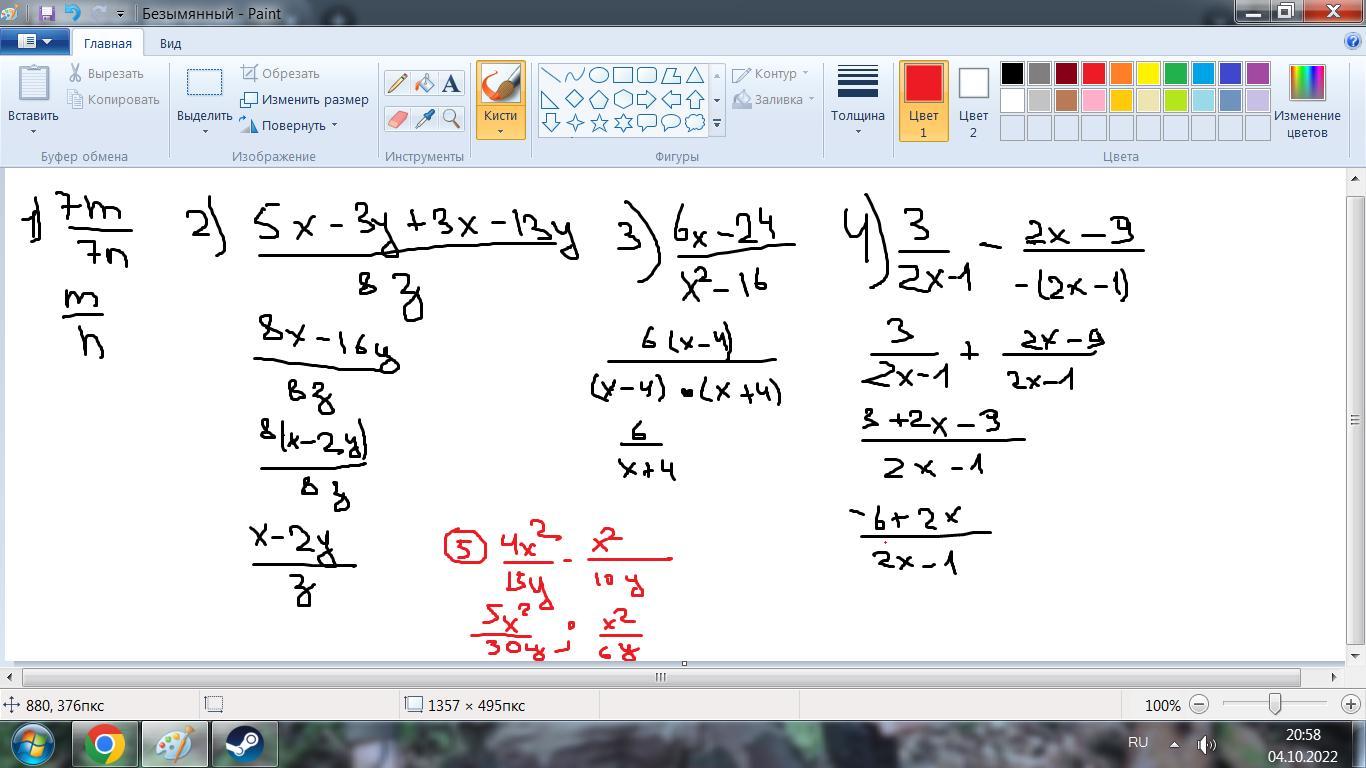 Безымянный - Paint
Главная Вид
Вставить
Вырезать
Копировать
Буфер обмена
Выделить
Обрезать
Изменить размер
Повернуть
Изображение
A
Инструменты
Кисти
Контур
Заливка
Фигуры
Толщина
Цвет 1
Цвет 2
Изменение цветов
Цвета
1) 7m
7n
m
n
2) 5x - 3y + 3x - 13y
8z
8x - 16y
8z
8(x - 2y)
8z
x - 2y
z
3) 6x - 24
x² - 16
6(x - 4)
(x - 4) • (x + 4)
6
x + 4
4) 3 - 2x - 9
2x - 1 -(2x - 1)
3 + 2x - 9
2x - 1 2x - 1
3 + 2x - 9
2x - 1
-6 + 2x
2x - 1
5 4x² - x²
15y 10y
5x² ; x²
30y 6y
880, 376пкс
1357 × 495пкс
100%
RU
20:58
04.10.2022